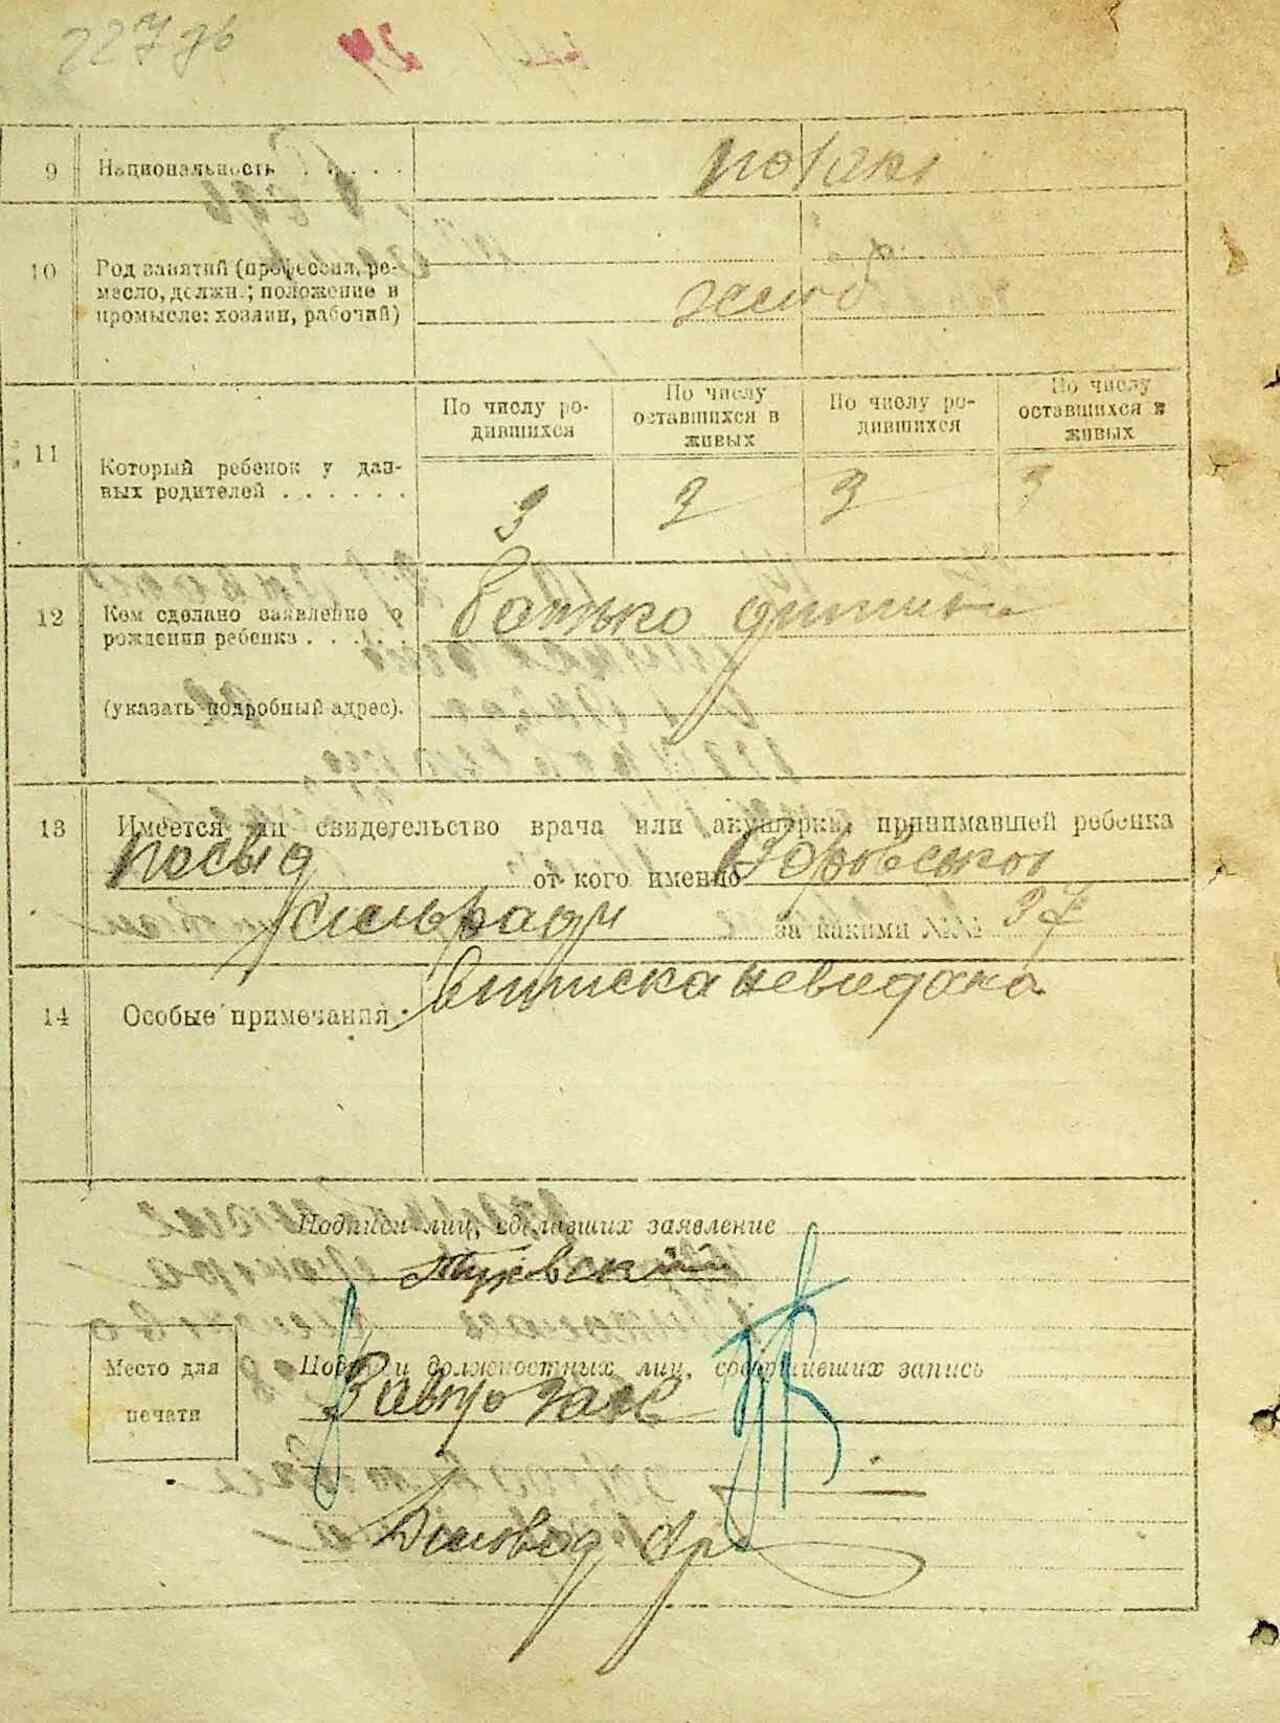 9 Национальность . . . . .
поляки
10 Род занятий (профессия, ре-
месло, должн.; положение в
промысле: хозяин, рабочий)
хлюб
11 Который ребенок у дан-
ных родителей . . . . . .
По числу ро-
дившихся
По числу
оставшихся в
живых
По числу ро-
дившихся
По числу
оставшихся в
живых
3 2 3
12 Кем сделано заявление о
рождении ребенка . . . . . .
батько дитини
(указать подробный адрес).
13 Имеется ли свидетельство врача или акушерки, принимавшей ребенка
посвід от кого именно
сільради за какими №№ 37
14 Особые примечания .
виписка невидана
Подписи лиц, сделавших заявление
Место для
печати
Подписи должностных лиц, совершивших запись
Діловод